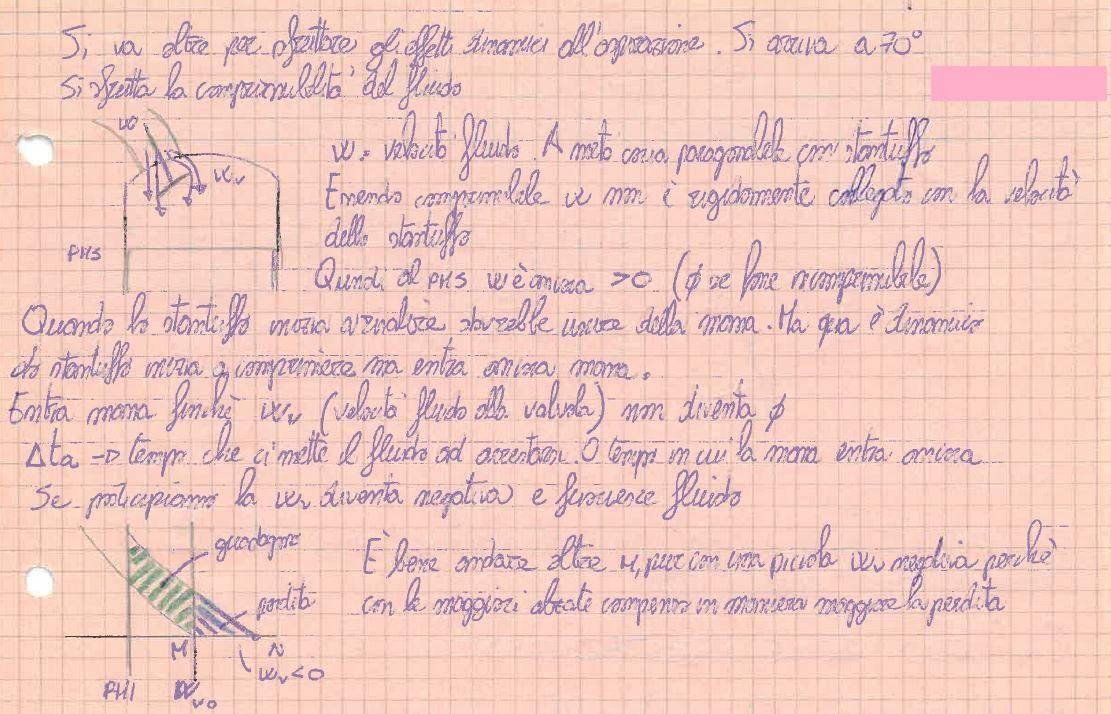 Si va oltre per sfruttare gli effetti dinamici all'aspirazione. Si arriva a 70°
Si sfrutta la comprimibilità del fluido
w
w = velocità fluido. A metà corsa paragonabile con stantuffo
w_v
Essendo comprimibile w non è rigidamente collegato con la velocità
dello stantuffo
PMS
Quindi al PMS w è ancora >0 (ϕ se fosse incomprimibile)
Quando lo stantuffo inizia a risalire dovrebbe uscire della massa. Ma qua è dinamico
lo stantuffo inizia a comprimere ma entra ancora massa.
Entra massa finché w_v (velocità fluido alla valvola) non diventa ϕ
Δta → tempo che ci mette il fluido ad arrestarsi. O tempo in cui la massa entra ancora
Se posticipiamo la w_v diventa negativa e fuoriesce fluido
guadagno
È bene andare oltre M, pur con una piccola w_v negativa perché
perdita
con le maggiori alzate compenso in maniera maggiore la perdita
M N
w_v<0
PMI w_v0